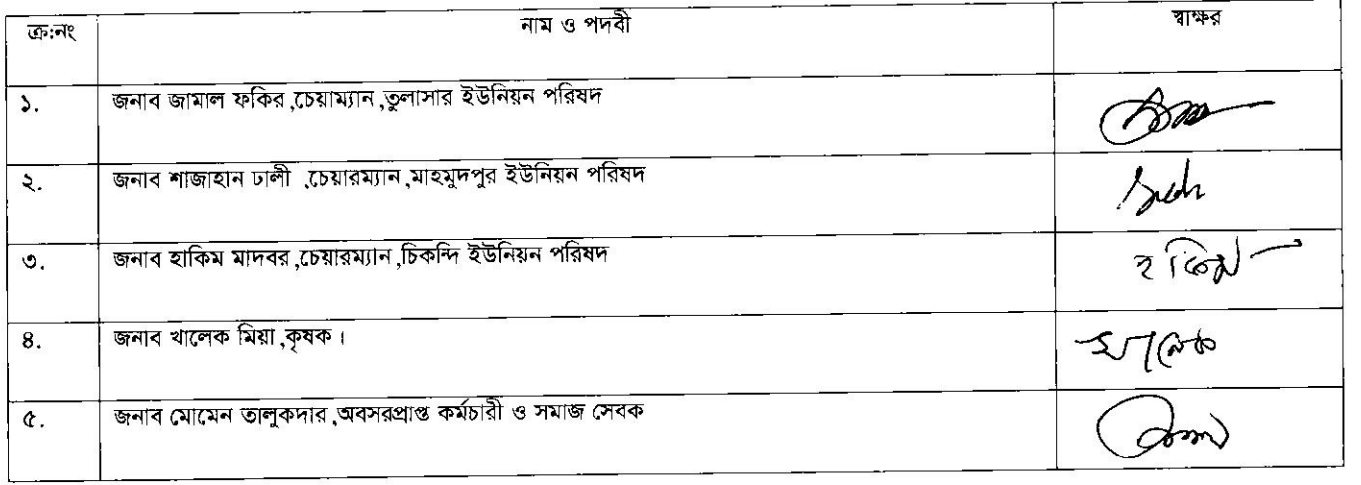 ক্র:নং নাম ও পদবী স্বাক্ষর
১. জনাব জামাল ফকির ,চেয়াম্যান ,তুলাসার ইউনিয়ন পরিষদ
২. জনাব শাজাহান ঢালী ,চেয়ারম্যান ,মাহমুদপুর ইউনিয়ন পরিষদ
৩. জনাব হাকিম মাদবর ,চেয়ারম্যান ,চিকন্দি ইউনিয়ন পরিষদ হাকিম
৪. জনাব খালেক মিয়া ,কৃষক । খালেক
৫. জনাব মোমেন তালুকদার ,অবসরপ্রাপ্ত কর্মচারী ও সমাজ সেবক